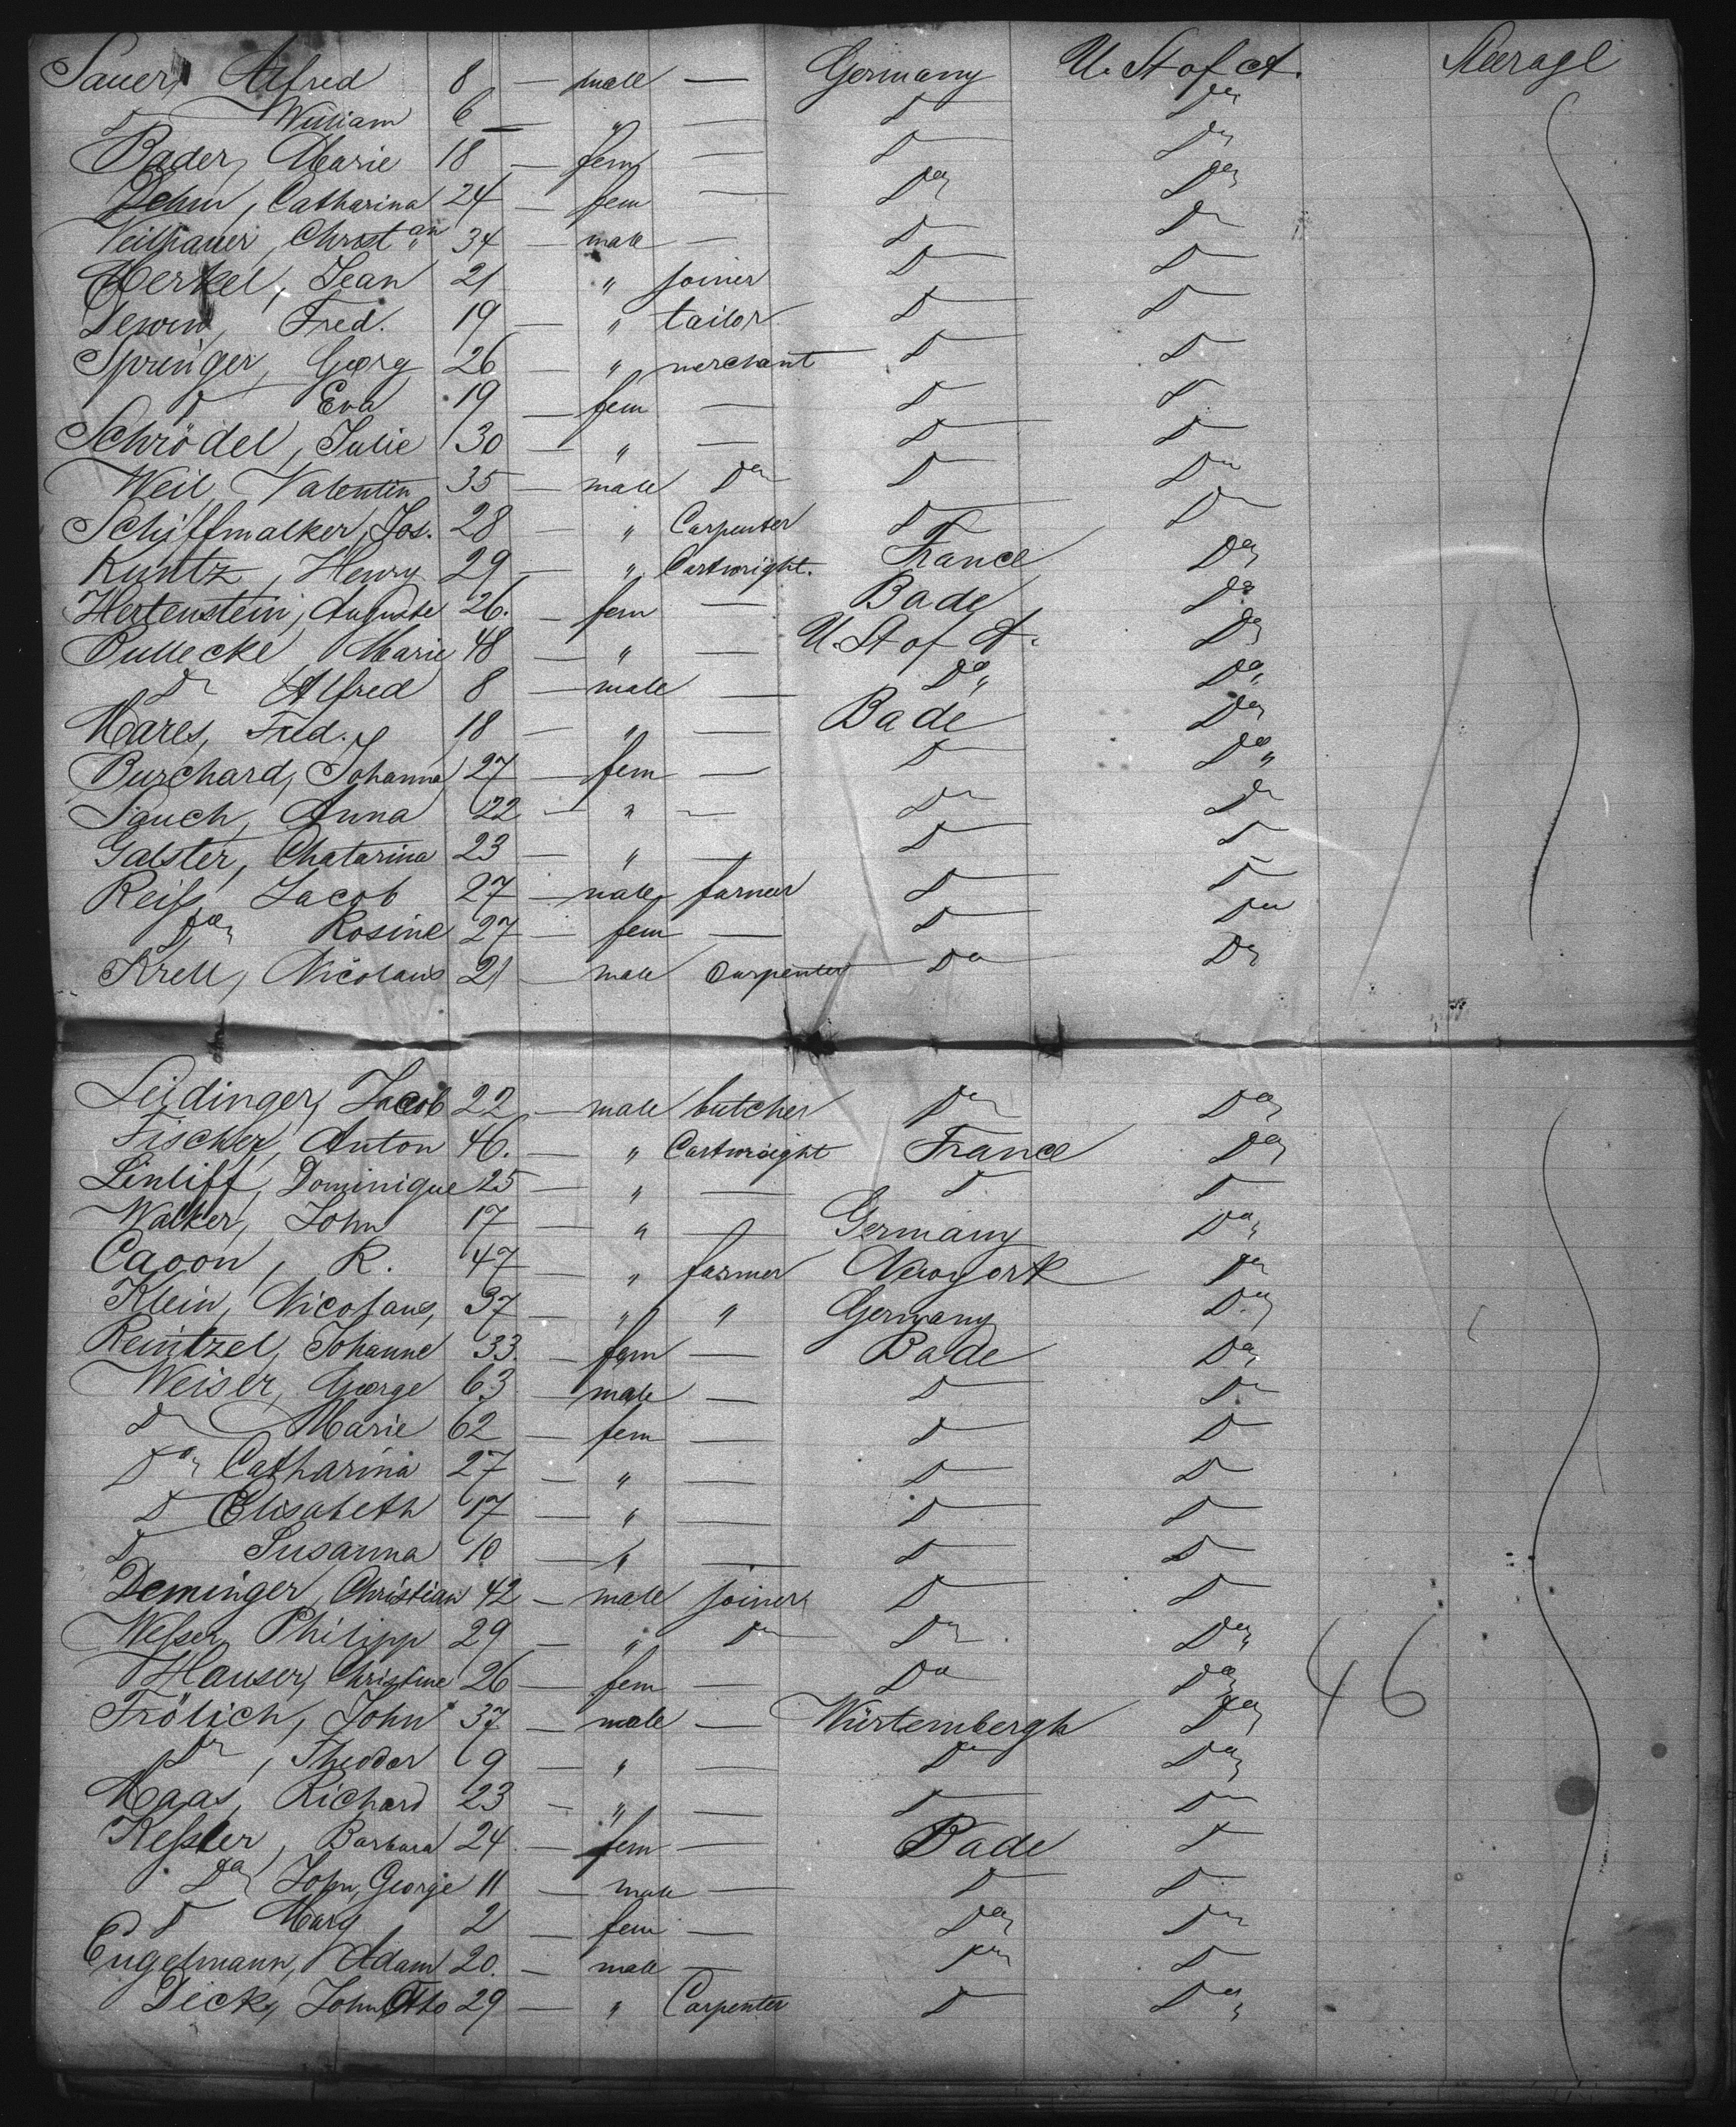 Sauer, Alfred 8 — male — Germany U. St of A. Steerage
D William 6 — " — D Do
Bader, Marie 18 — fem — D Do
Dehm, Catharina 24 — fem — Do Do
Christian 34 — male — D Do
Merkel, Jean 21 " joiner D D
Fred. 19 — " tailor D D
Springer, Georg 26 — " merchant D D
D Eva 19 — fem — D D
Schrödel, Julie 30 — " — D D
Weil, Valentin 35 — male Do D Do
Schiffmalker, Jos. 28 — " Carpenter D Do
Kuntz, Henry 29 — " Cartwright. France Do
Hertenstein, Auguste 26. — fem — Bade Do
Bullecke Marie 48 — " — U. St of A. Do
Do Alfred 8 — male — Do Do
Mares, Fred. 18 — " — Bade Do
Burchard, Johanna 27 — fem — D Do
Pauch, Anna 22 — " — Do Do
Galster, Chatarina 23 — " — D D
Reiss, Jacob 27 — male farmer D D
Do Rosine 27 — fem — D Do
Krell, Nicolaus 21 — male Carpenter Do Do
Leidinger, Jacob 22 — male butcher Do Do
Fischer, Anton 46. — " Cartwright France Do
Linliff, Dominique 25 — " — D D
Walker, John 17 — " — Germany Do
Caoon, R. 47 — " farmer Newyork Do
Klein, Nicolaus, 37 — " " Germany Do
Reintzel, Johanne 33. — fem — Bade Do
Weiser, George 63 — male — D Do
Do Marie 62 — fem — D D
Do Catharina 27 — " — D D
D Elisabeth 17 — " — D D
D Susanna 10 — " — D D
Deminger, Christian 42 — male joiner D D
Wesser, Philipp 29 — " Do Do Do
Hauser, Christine 26 — fem — Do Do 46
Frölich, John 37 — male — Würtembergh Do
Do, Theodor 9 — " — Do Do
Maas, Richard 23 — " — D Do
Kessler, Barbara 24 — fem — Bade D
Do John, George 11 — male — D D
D Marg 2 — fem — Do Do
Engelmann, Adam 20. — male — Do D
Dick, John Otto 29 — " Carpenter D Do